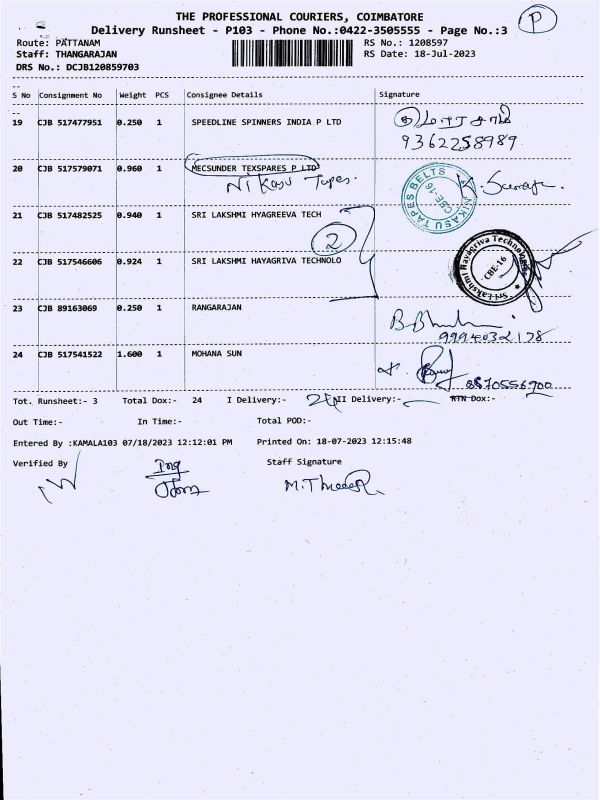 THE PROFESSIONAL COURIERS, COIMBATORE
P
Delivery Runsheet - P103 - Phone No.:0422-3505555 - Page No.:3
Route: PATTANAM
RS No.: 1208597
Staff: THANGARAJAN
RS Date: 18-Jul-2023
DRS No.: DCJB120859703
S No Consignment No Weight PCS Consignee Details Signature
19 CJB 517477951 0.250 1 SPEEDLINE SPINNERS INDIA P LTD
9362258989
20 CJB 517579071 0.960 1 MECSUNDER TEXSPARES P LTD
Nikasu Tapes.
NIKASU TAPES BELTS CBE-16
21 CJB 517482525 0.940 1 SRI LAKSHMI HYAGREEVA TECH
2
22 CJB 517546606 0.924 1 SRI LAKSHMI HAYAGRIVA TECHNOLO
CBE-16
23 CJB 89163069 0.250 1 RANGARAJAN
9994032178
24 CJB 517541522 1.600 1 MOHANA SUN
8870556700
Tot. Runsheet:- 3 Total Dox:- 24 I Delivery:- 24 II Delivery:- RTN Dox:-
Out Time:- In Time:- Total POD:-
Entered By :KAMALA103 07/18/2023 12:12:01 PM Printed On: 18-07-2023 12:15:48
Verified By Staff Signature